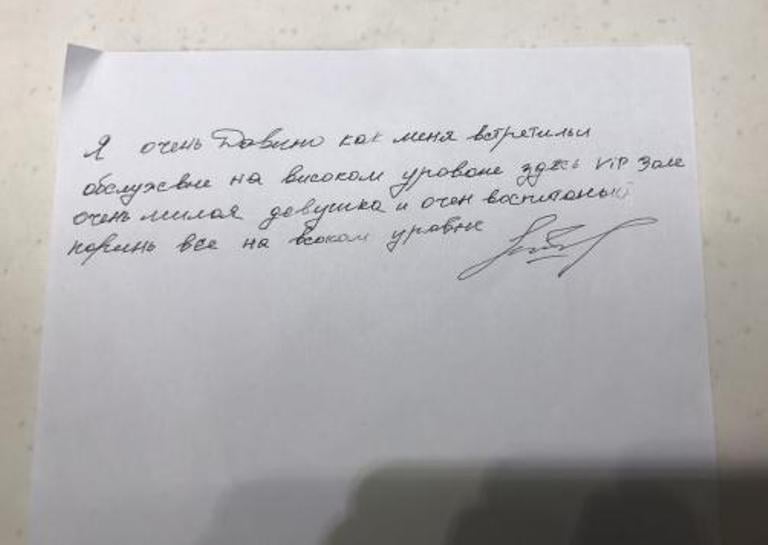 Я очень Давино как меня встретильи
обслужвие на високом уроване здесь ViP Зале
очень милая девушка и очен воспитаный
паринь все на всоком уровне